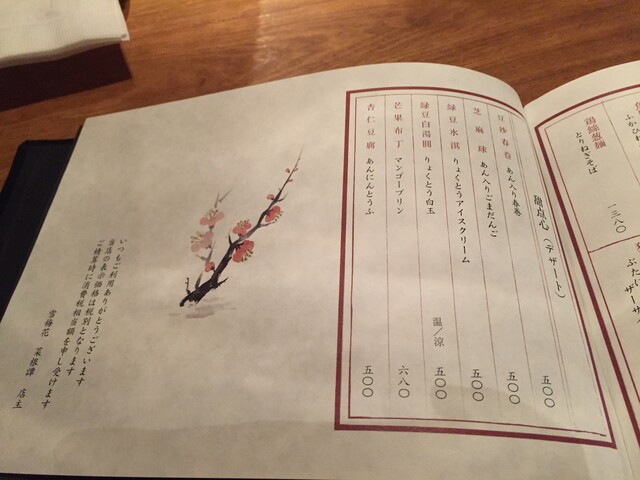 ふかひ
鶏絲葱麺 とりねぎそば 一三八〇
ぶた
ザーサ
甜点心（デザート）
豆沙春巻 あん入り春巻 五〇〇
芝麻球 あん入りごまだんご 五〇〇
緑豆氷淇 りょくとうアイスクリーム 五〇〇
緑豆白湯圓 りょくとう白玉 温／涼 五〇〇
芒果布丁 マンゴープリン 六八〇
杏仁豆腐 あんにんとうふ 五〇〇
いつもご利用ありがとうございます
当店の表示価格は税別となります
ご精算時に消費税相当額を申し受けます
雪梅花 菜根譚 店主